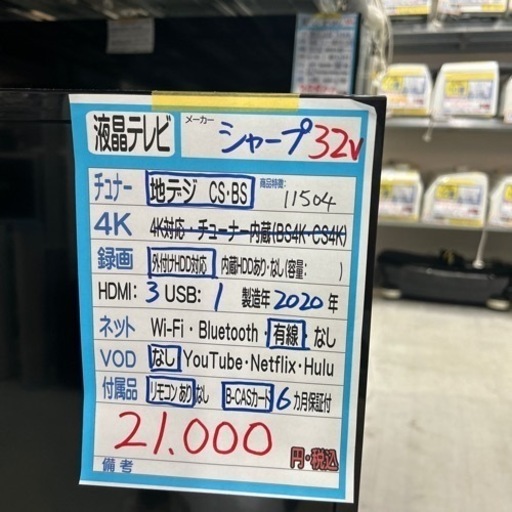 液晶テレビ メーカー シャープ 32v
チューナー 地デジ CS・BS 商品特徴: 11504
4K 4K対応・チューナー内蔵(BS4K・CS4K)
録画 外付けHDD対応 内蔵HDDあり・なし(容量: )
HDMI: 3 USB: 1 製造年 2020 年
ネット Wi-Fi・Bluetooth・有線・なし
VOD なし YouTube・Netflix・Hulu
付属品 リモコン あり なし B-CASカード 6 カ月保証付
21.000 円・税込
備考